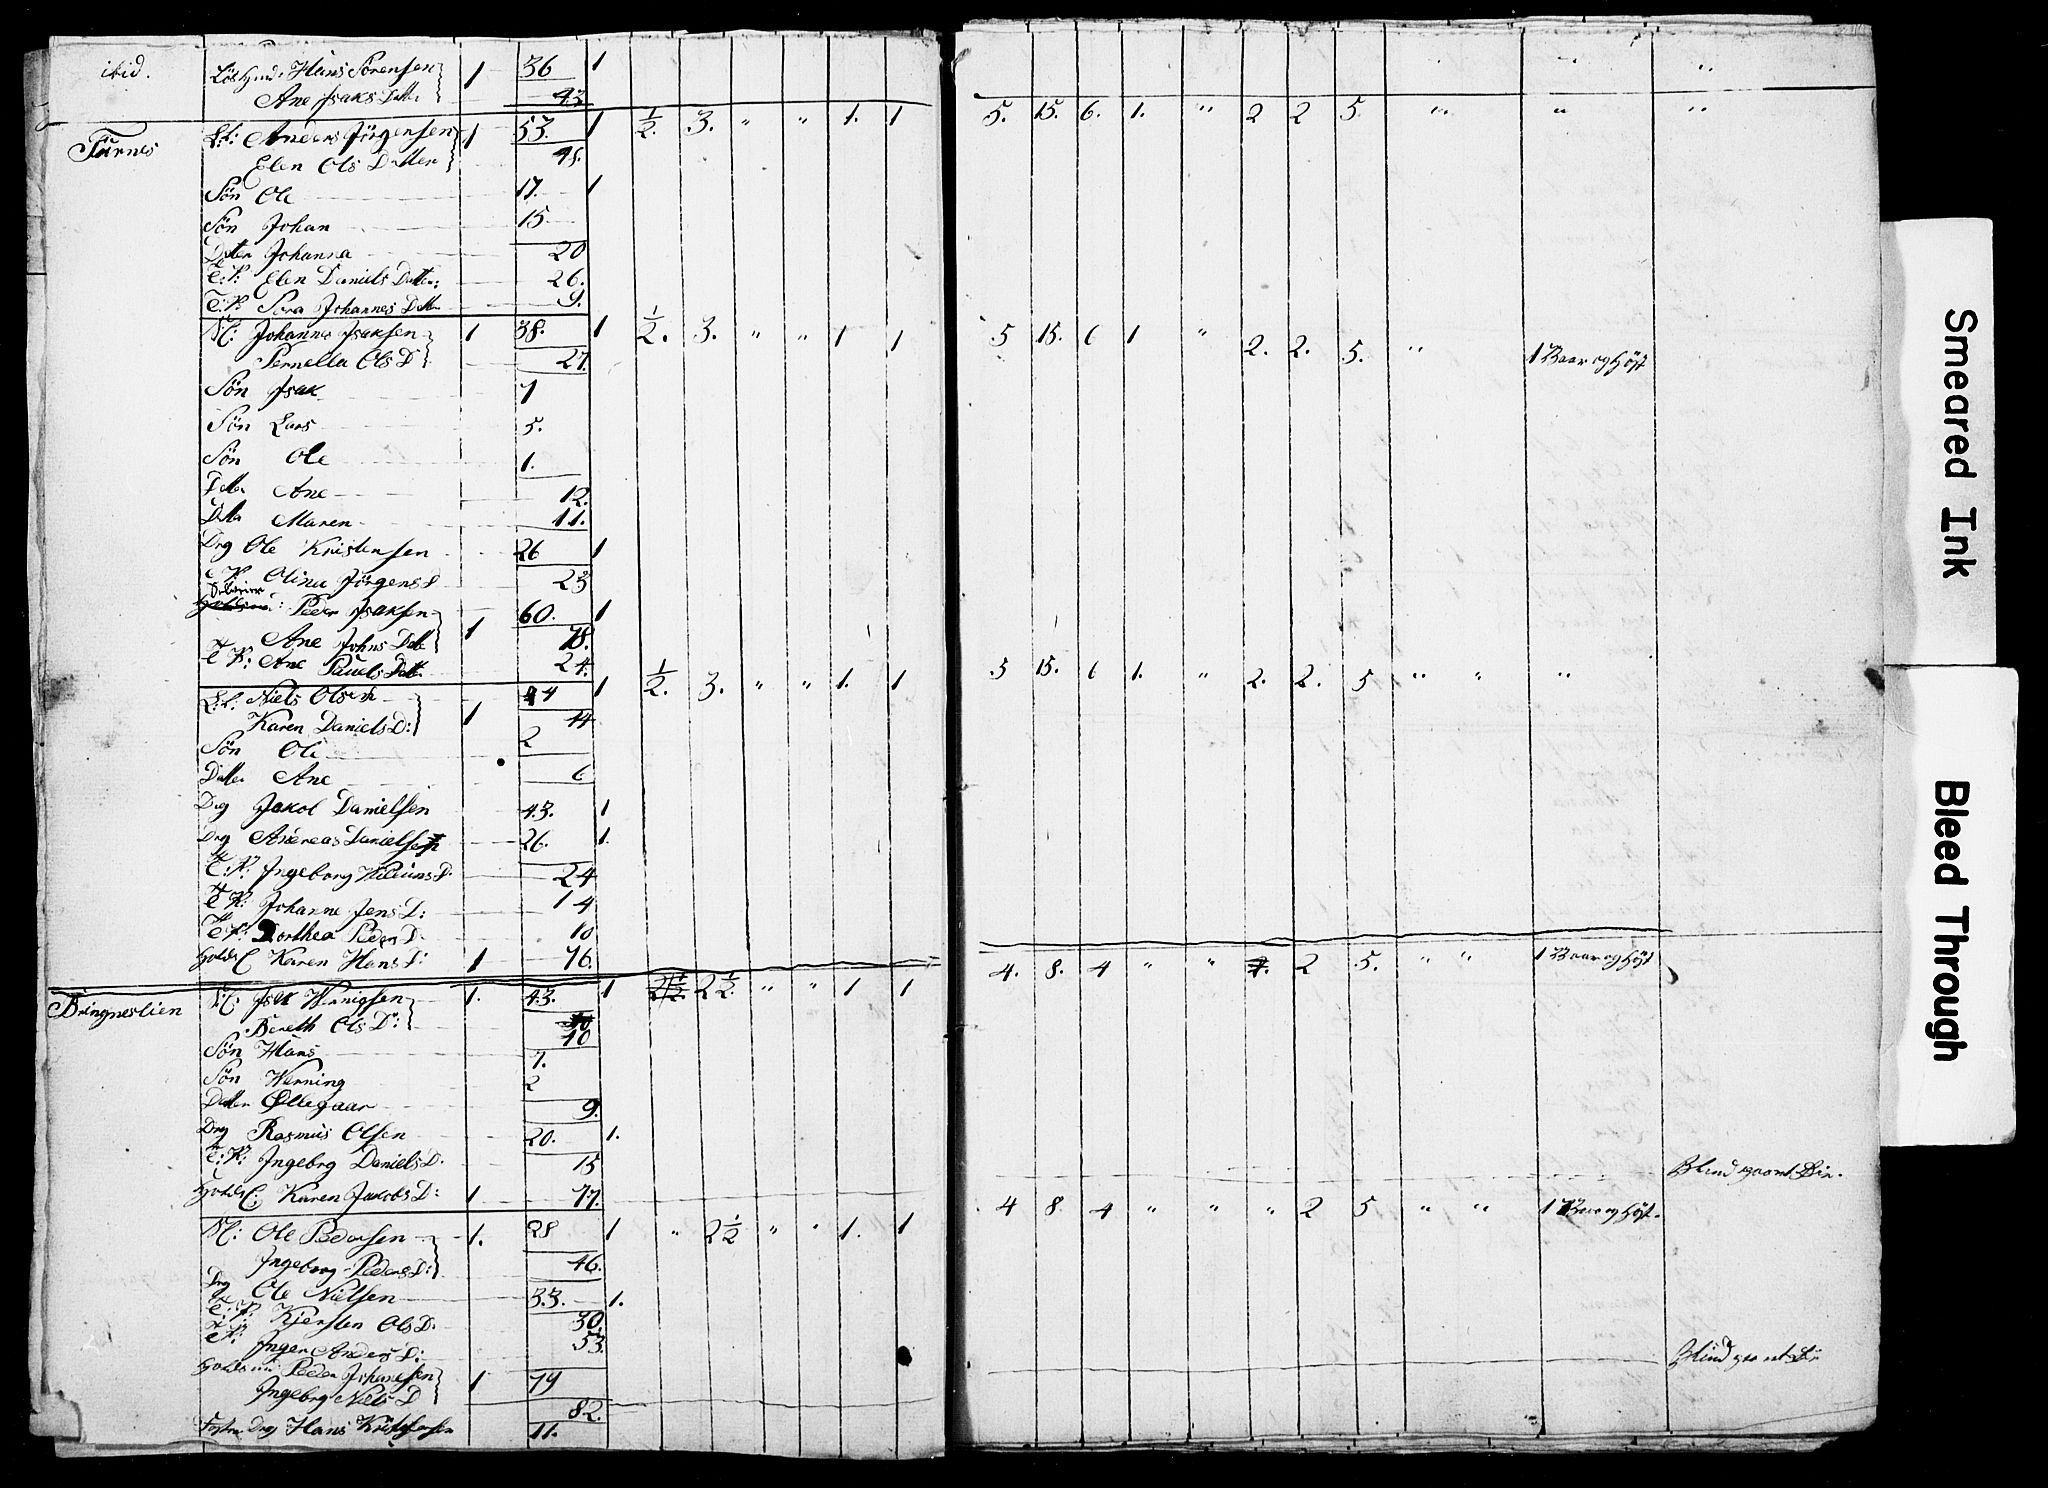 ibid. Hans Sörensen 1 36 1
Ane Isaks Datter 43
Furnes L:l: Anders Jörgensen 1 53. 1 1/2. 3. " " 1. 1 5. 15. 6. 1. " 2 2 5. " " "
Elen Ols Datter 48.
Sön Ole 17. 1
Sön Johan 15
Datter Johanna 20
T:P: Elen Daniels Datter: 26.
T:P: Datter 9.
Johannes Isaksen 1 38. 1 1/2. 3. " " 1 1 5 15. 6 1 " 2. 2. 5. " 1 Vaar og Höst
Pernella Ols D 27.
Sön Isak 7
Sön Lars 5.
Sön Ole 1.
Datter Ane 12.
Datter Maren 11.
Drg Ole Kristensen 26 1
Olina Jörgens D 23
Peder Isaksen 60. 1
Ane Johns Datt 1 78.
Ane Povels Datt 24.
L:l: Niels Olsen 44 1 1/2. 3. " " 1. 1 5 15. 6 1. " 2. 2. 5 " " "
Karen Daniels D: 1 44
Sön Ole 2
Datter Ane 6
Drg Jakob Danielsen 43. 1
Drg Andreas Danielsen 26. 1.
Ingeborg D: 24
Johanne Jens D: 14
Dorthea Peders D. 10
Karen Hans D: 1 76.
Dringneslien Isak Wernigsen 1. 43. 1 2 1/2. " " 1 1 4. 8. 4 " " 2 5. " " 1 Vaar og Höst
Bereth Ols D: 40
Sön Hans 7.
Sön Werning 2
Datter Øllegaar 9.
Drg Rasmus Olsen 20. 1.
Ingebrg Daniels D. 15
Karen Jakobs D: 1 77. Blind
Ole Pedersen 1. 28 1 " 2 1/2 " " 1. 1 4 8. 4 " " " 2 5 " " 1 Vaar og Höst.
Ingeborg Peders D: 46.
Drg Ole Nielsen 33. 1.
Kjersten Ols D. 30.
Inger Anders D: 53.
Peder Johansen 1 79 Blind
Ingebrg Niels D 82.
Foster Drg Hans Kristofersen 11.
Smeared Ink
Bleed Through